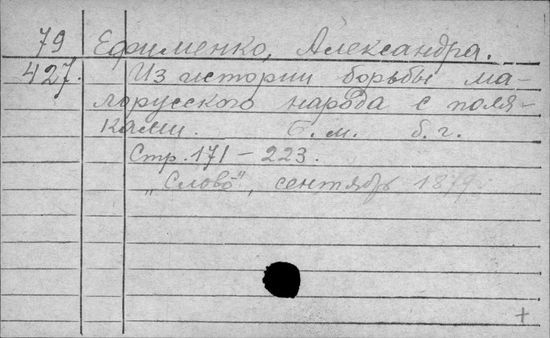 79 Ефименко, Александра.
427. Из истории борьбы ма-
лорусского народа с поля-
ками. Б. м. б. г.
Стр. 171 – 223.
„Слово", сентябрь 1879
+